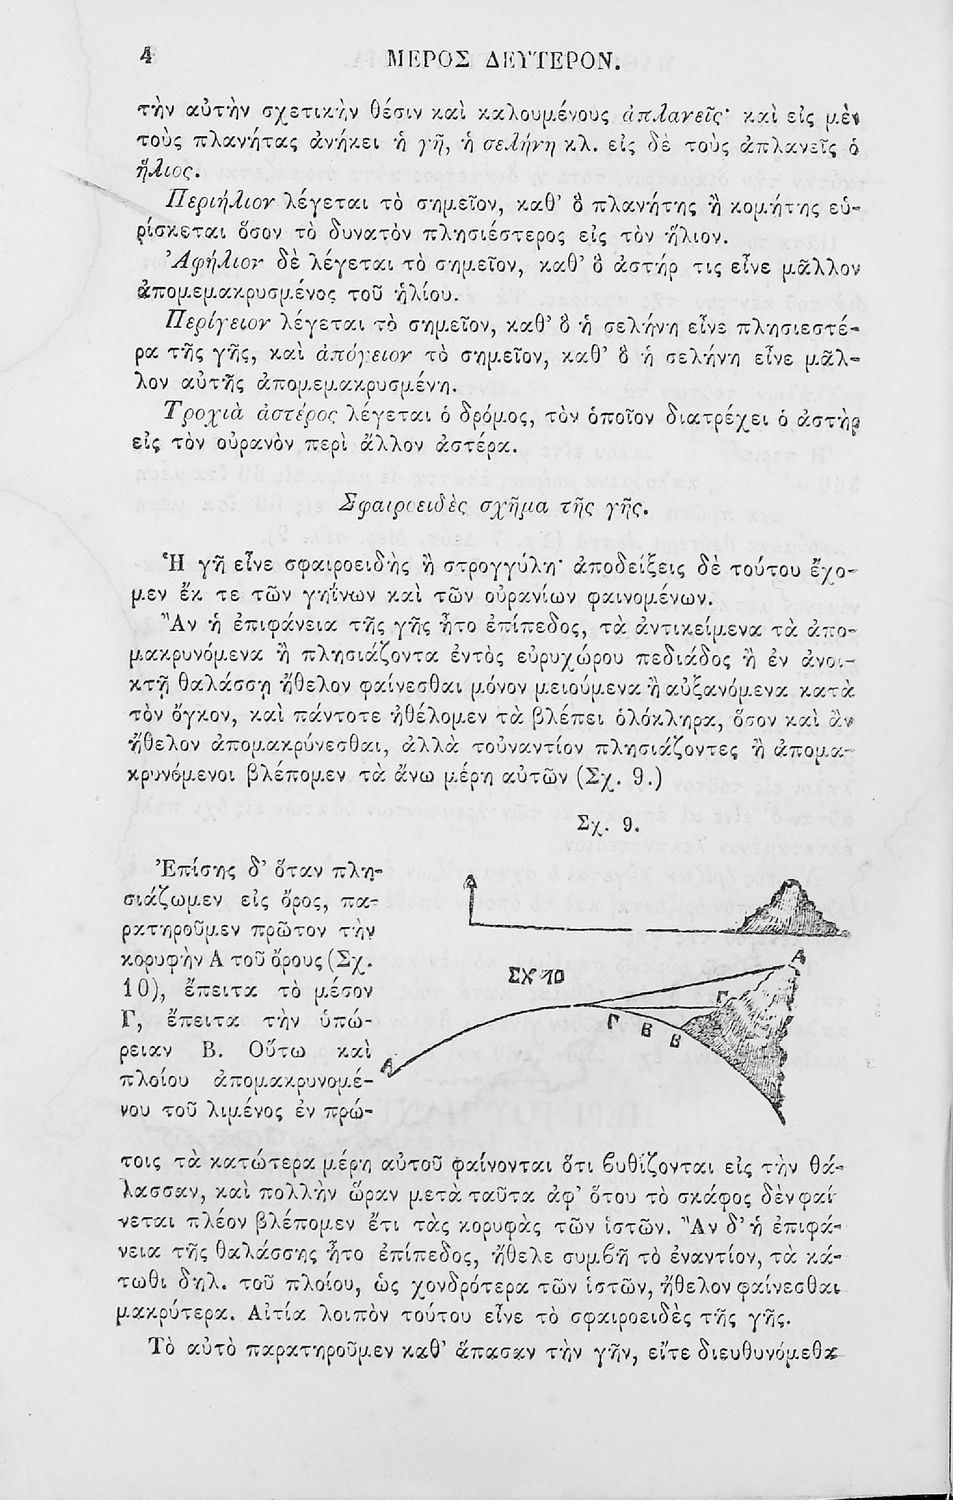 4 ΜΕΡΟΣ ΔΕΥΤΕΡΟΝ.
τὴν αὐτὴν σχετικὴν θέσιν καὶ καλουμένους ἀπλανεῖς· καὶ εἰς μὲν
τοὺς πλανήτας ἀνήκει ἡ γῆ, ἡ σελήνη κλ. εἰς δὲ τοὺς ἀπλανεῖς ὁ
ἥλιος.
Περιήλιον λέγεται τὸ σημεῖον, καθ’ ὃ πλανήτης ἢ κομήτης εὑ-
ρίσκεται ὅσον τὸ δυνατὸν πλησιέστερος εἰς τὸν ἥλιον.
Ἀφήλιον δὲ λέγεται τὸ σημεῖον, καθ’ ὃ ἀστήρ τις εἶνε μᾶλλον
ἀπομεμακρυσμένος τοῦ ἡλίου.
Περίγειον λέγεται τὸ σημεῖον, καθ’ ὃ ἡ σελήνη εἶνε πλησιεστέ-
ρα τῆς γῆς, καὶ ἀπόγειον τὸ σημεῖον, καθ’ ὃ ἡ σελήνη εἶνε μᾶλ-
λον αὐτῆς ἀπομεμακρυσμένη.
Τροχιὰ ἀστέρος λέγεται ὁ δρόμος, τὸν ὁποῖον διατρέχει ὁ ἀστὴρ
εἰς τὸν οὐρανὸν περὶ ἄλλον ἀστέρα.
Σφαιροειδὲς σχῆμα τῆς γῆς.
Ἡ γῆ εἶνε σφαιροειδὴς ἢ στρογγύλη· ἀποδείξεις δὲ τούτου ἔχο-
μεν ἔκ τε τῶν γηΐνων καὶ τῶν οὐρανίων φαινομένων.
Ἂν ἡ ἐπιφάνεια τῆς γῆς ἦτο ἐπίπεδος, τὰ ἀντικείμενα τὰ ἀπο-
μακρυνόμενα ἢ πλησιάζοντα ἐντὸς εὐρυχώρου πεδιάδος ἢ ἐν ἀνοι-
κτῇ θαλάσσῃ ἤθελον φαίνεσθαι μόνον μειούμενα ἢ αὐξανόμενα κατὰ
τὸν ὄγκον, καὶ πάντοτε ἠθέλομεν τὰ βλέπει ὁλόκληρα, ὅσον καὶ ἂν
ἤθελον ἀπομακρύνεσθαι, ἀλλὰ τοὐναντίον πλησιάζοντες ἢ ἀπομα-
κρυνόμενοι βλέπομεν τὰ ἄνω μέρη αὐτῶν (Σχ. 9.)
Σχ. 9.
Ἐπίσης δ’ ὅταν πλη-
σιάζωμεν εἰς ὄρος, πα-
ρατηροῦμεν πρῶτον τὴν
κορυφὴν Α τοῦ ὄρους (Σχ.
10), ἔπειτα τὸ μέσον
Γ, ἔπειτα τὴν ὑπώ-
ρειαν Β. Οὕτω καὶ
πλοίου ἀπομακρυνομέ-
νου τοῦ λιμένος ἐν πρώ-
ΣΧ 10
Α
Γ
Γ Β Β
Α
τοις τὰ κατώτερα μέρη αὐτοῦ φαίνονται ὅτι βυθίζονται εἰς τὴν θά-
λασσαν, καὶ πολλὴν ὥραν μετὰ ταῦτα ἀφ’ ὅτου τὸ σκάφος δὲν φαί-
νεται πλέον βλέπομεν ἔτι τὰς κορυφὰς τῶν ἱστῶν. Ἂν δ’ ἡ ἐπιφά-
νεια τῆς θαλάσσης ἦτο ἐπίπεδος, ἤθελε συμβῆ τὸ ἐναντίον, τὰ κά-
τωθι δηλ. τοῦ πλοίου, ὡς χονδρότερα τῶν ἱστῶν, ἤθελον φαίνεσθαι
μακρύτερα. Αἰτία λοιπὸν τούτου εἶνε τὸ σφαιροειδὲς τῆς γῆς.
Τὸ αὐτὸ παρατηροῦμεν καθ’ ἅπασαν τὴν γῆν, εἴτε διευθυνόμεθα